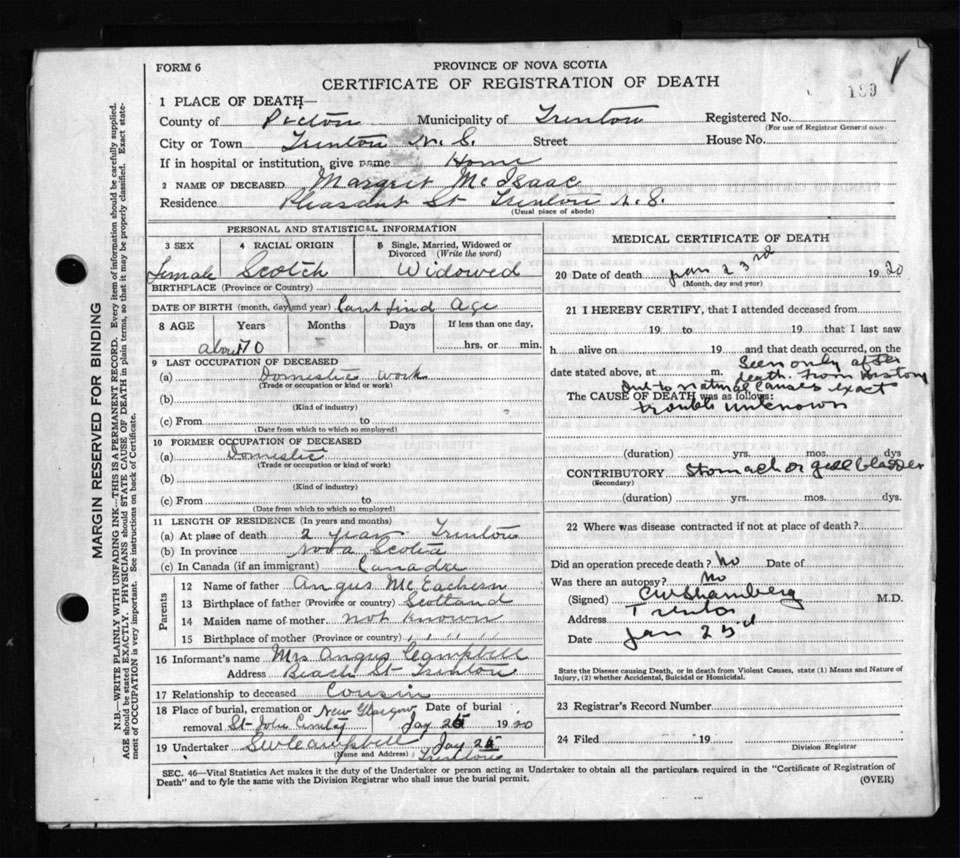 FORM 6
PROVINCE OF NOVA SCOTIA
CERTIFICATE OF REGISTRATION OF DEATH
189
1 PLACE OF DEATH—
County of Pictou Municipality of Trenton Registered No.
(For use of Registrar General only)
City or Town Trenton N.S. Street House No.
If in hospital or institution, give name Home
2 NAME OF DECEASED Margret McIsaac
Residence Pleasant St Trenton N.S.
(Usual place of abode)
PERSONAL AND STATISTICAL INFORMATION
3 SEX 4 RACIAL ORIGIN 5 Single, Married, Widowed or Divorced (Write the word)
Female Scotch Widowed
BIRTHPLACE (Province or Country)
DATE OF BIRTH (month, day and year) Cant find Age
8 AGE Years Months Days If less than one day,
about 70 hrs. or min.
9 LAST OCCUPATION OF DECEASED
(a) Domestic work
(Trade or occupation or kind of work)
(b)
(Kind of industry)
(c) From to
(Date from which to which so employed)
10 FORMER OCCUPATION OF DECEASED
(a) Domestic
(Trade or occupation or kind of work)
(b)
(Kind of industry)
(c) From to
(Date from which to which so employed)
11 LENGTH OF RESIDENCE (In years and months)
(a) At place of death 2 year Trenton
(b) In province Nova Scotia
(c) In Canada (if an immigrant) Canada
Parents
12 Name of father Angus McEachern
13 Birthplace of father (Province or country) Scotland
14 Maiden name of mother not known
15 Birthplace of mother (Province or country) " " "
16 Informant's name Mrs Angus Campbell
Address Beach St Trenton
17 Relationship to deceased Cousin
18 Place of burial, cremation or New Glasgow Date of burial
removal St John Jan 25 1920
19 Undertaker Campbell Jan 25
(Name and Address) Trenton
MEDICAL CERTIFICATE OF DEATH
20 Date of death Jan 23rd 1920
(Month, day and year)
21 I HEREBY CERTIFY, that I attended deceased from
19 to 19 that I last saw
h alive on 19 and that death occurred, on the
Seen only after
date stated above, at m. death. From history
Due to natural causes exact
The CAUSE OF DEATH was as follows:
trouble unknown
(duration) yrs. mos. dys
CONTRIBUTORY Stomach or gall bladder
(Secondary)
(duration) yrs. mos. dys.
22 Where was disease contracted if not at place of death?
Did an operation precede death? No Date of
Was there an autopsy? No
(Signed) M.D.
Address Trenton
Date Jan 23rd
State the Disease causing Death, or in death from Violent Causes, state (1) Means and Nature of
Injury, (2) whether Accidental, Suicidal or Homicidal.
23 Registrar's Record Number
24 Filed 19
Division Registrar
SEC. 46—Vital Statistics Act makes it the duty of the Undertaker or person acting as Undertaker to obtain all the particulars required in the "Certificate of Registration of
Death" and to fyle the same with the Division Registrar who shall issue the burial permit. (OVER)
MARGIN RESERVED FOR BINDING
N.B.—WRITE PLAINLY WITH UNFADING INK—THIS IS A PERMANENT RECORD. Every item of information should be carefully supplied.
AGE should be stated EXACTLY. PHYSICIANS should STATE CAUSE OF DEATH in plain terms, so that it may be properly classified. Exact state-
ment of OCCUPATION is very important. See instructions on back of Certificate.